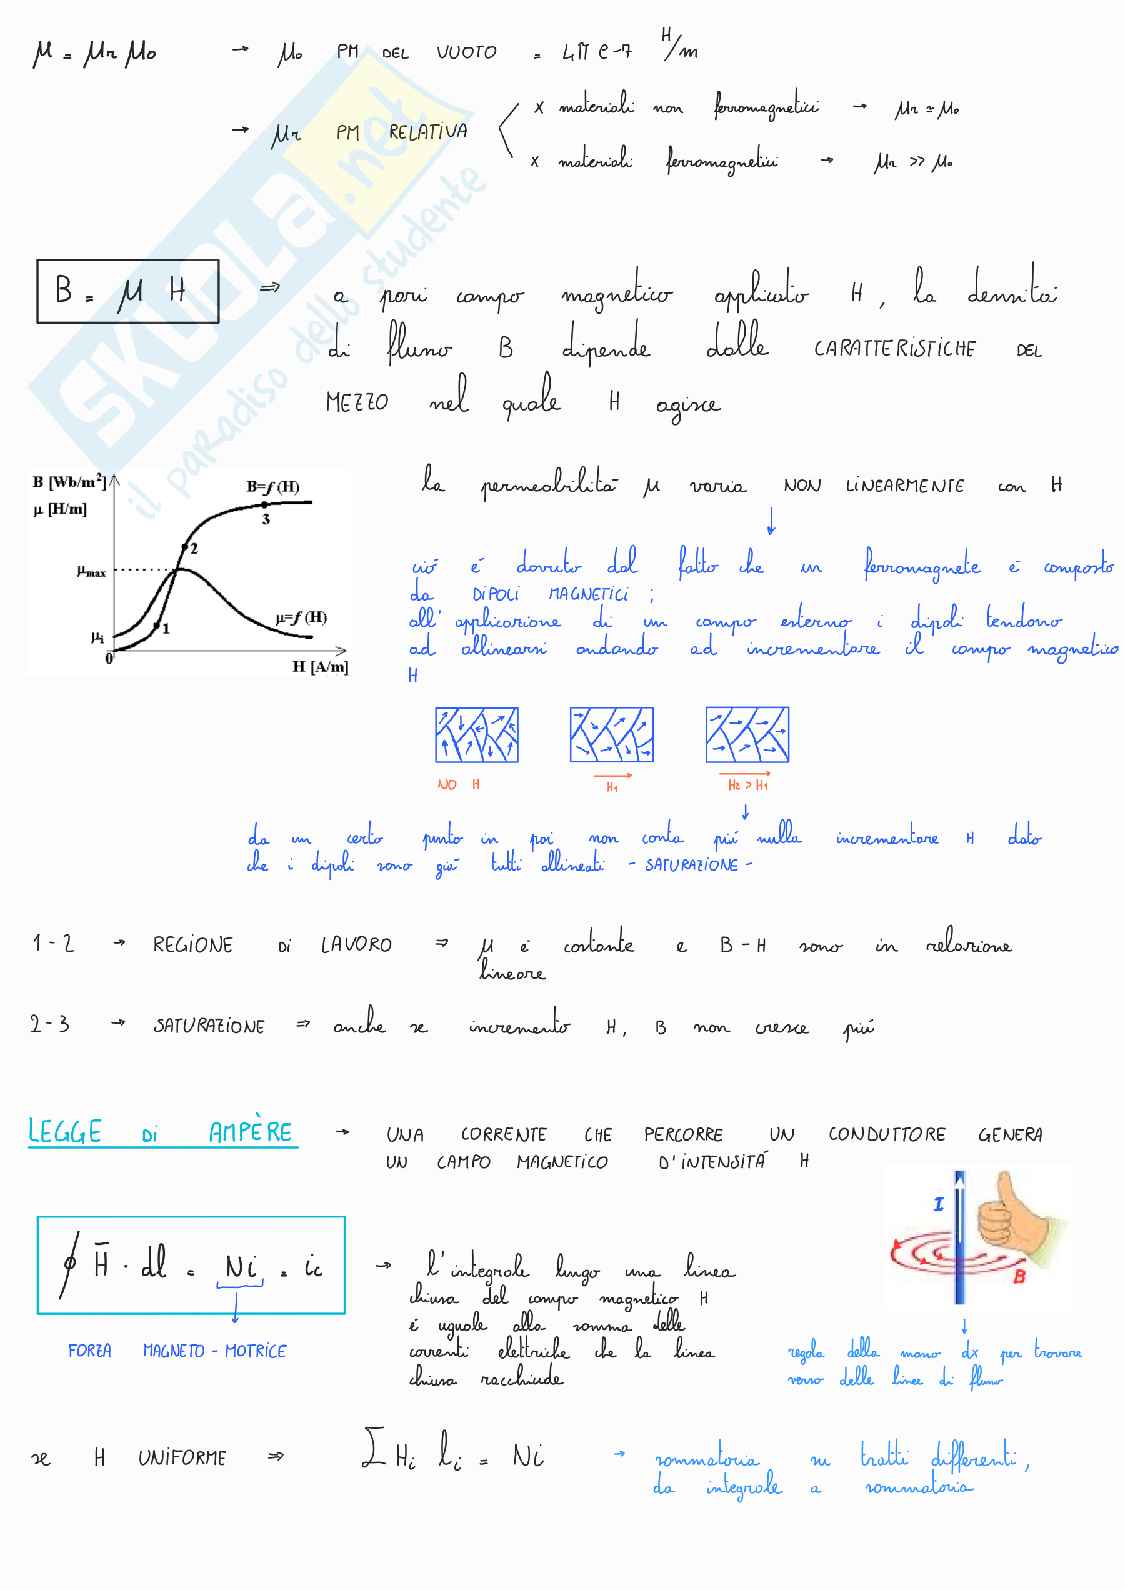 μ = μr μo → μo PM DEL VUOTO = 4π e-7 H/m
→ μr PM RELATIVA
x materiali non ferromagnetici → μr ≃ μo
x materiali ferromagnetici → μr >> μo
SKUOLA.net
il paradiso dello studente
B = μ H ⇒ a pari campo magnetico applicato H, la densità
di flusso B dipende dalle CARATTERISTICHE DEL
MEZZO nel quale H agisce
B [Wb/m²]
μ [H/m]
B=f(H)
3
2
μmax
1
μ=f(H)
μi
0
H [A/m]
la permeabilità μ varia NON LINEARMENTE con H
↓
ciò è dovuto dal fatto che un ferromagnete è composto
da DIPOLI MAGNETICI ;
all'applicazione di un campo esterno i dipoli tendono
ad allinearsi andando ad incrementare il campo magnetico
H
NO H
H1
H2 > H1
↓
da un certo punto in poi non conta più nulla incrementare H dato
che i dipoli sono già tutti allineati - SATURAZIONE -
1-2 → REGIONE DI LAVORO ⇒ μ è costante e B-H sono in relazione
lineare
2-3 → SATURAZIONE ⇒ anche se incremento H, B non cresce più
LEGGE DI AMPÈRE → UNA CORRENTE CHE PERCORRE UN CONDUTTORE GENERA
UN CAMPO MAGNETICO D'INTENSITÁ H
∮ H̄ · dl = Ni = ic → l'integrale lungo una linea
chiusa del campo magnetico H
è uguale alla somma delle
correnti elettriche che la linea
chiusa racchiude
FORZA MAGNETO-MOTRICE
I
B
↓
regola della mano dx per trovare
verso delle linee di flusso
se H UNIFORME ⇒ Σ Hi li = Ni → sommatoria su tratti differenti,
da integrale a sommatoria